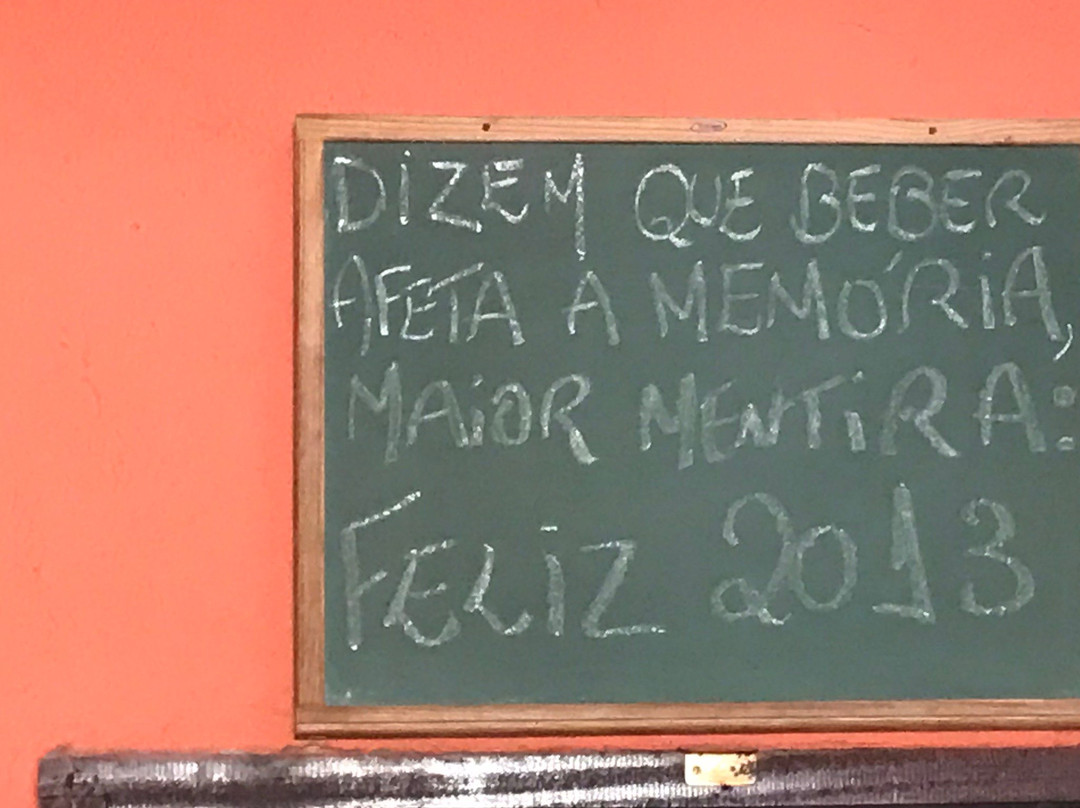 DiZEM QUE BEBER
AFETA A MEMÓRiA,
MAiOR MENTiRA:
FELiZ 2013